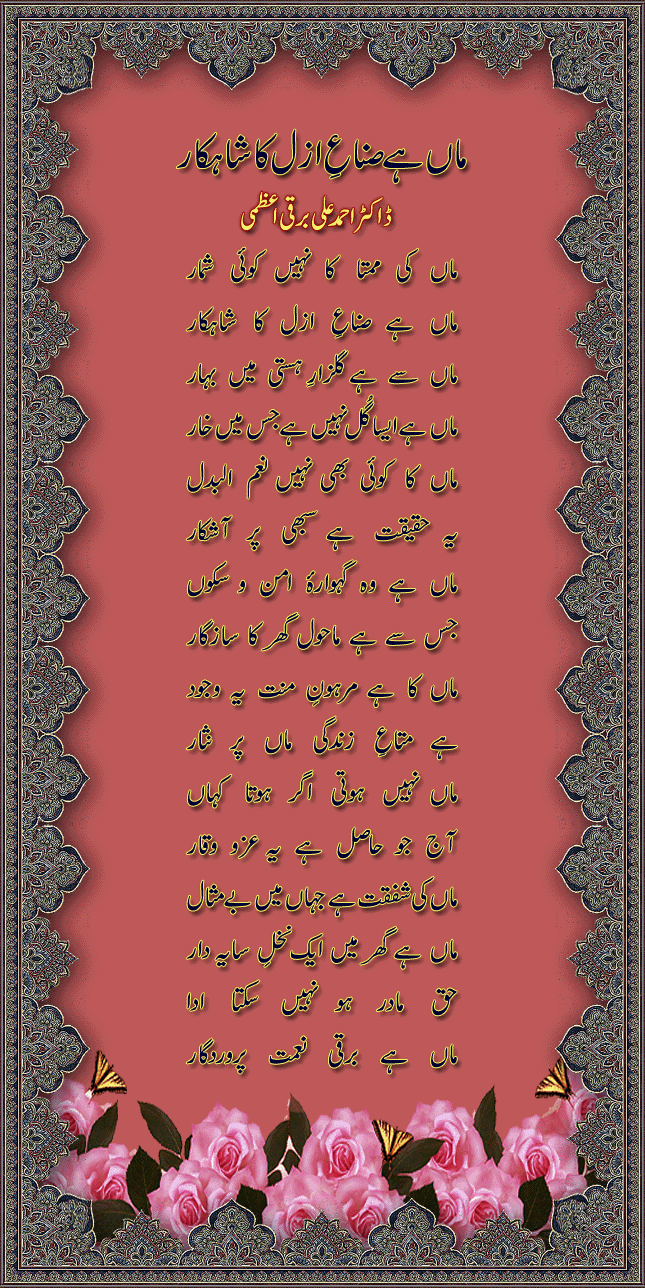 ماں ہے صناعِ ازل کا شاہکار
ڈاکٹر احمد علی برقی اعظمی
ماں کی ممتا کا نہیں کوئی شمار
ماں ہے صناعِ ازل کا شاہکار
ماں سے ہے گلزارِ ہستی میں بہار
ماں ہے ایسا گُل نہیں ہے جس میں خار
ماں کا کوئی بھی نہیں نعم البدل
یہ حقیقت ہے سبھی پر آشکار
ماں ہے وہ گہوارۂ امن و سکوں
جس سے ہے ماحول گھر کا سازگار
ماں کا ہے مرہونِ منت یہ وجود
ہے متاعِ زندگی ماں پر نثار
ماں نہیں ہوتی اگر ہوتا کہاں
آج جو حاصل ہے یہ عزو وقار
ماں کی شفقت ہے جہاں میں بے مثال
ماں ہے گھر میں ایک نخلِ سایہ دار
حق مادر ہو نہیں سکتا ادا
ماں ہے برقی نعمت پروردگار